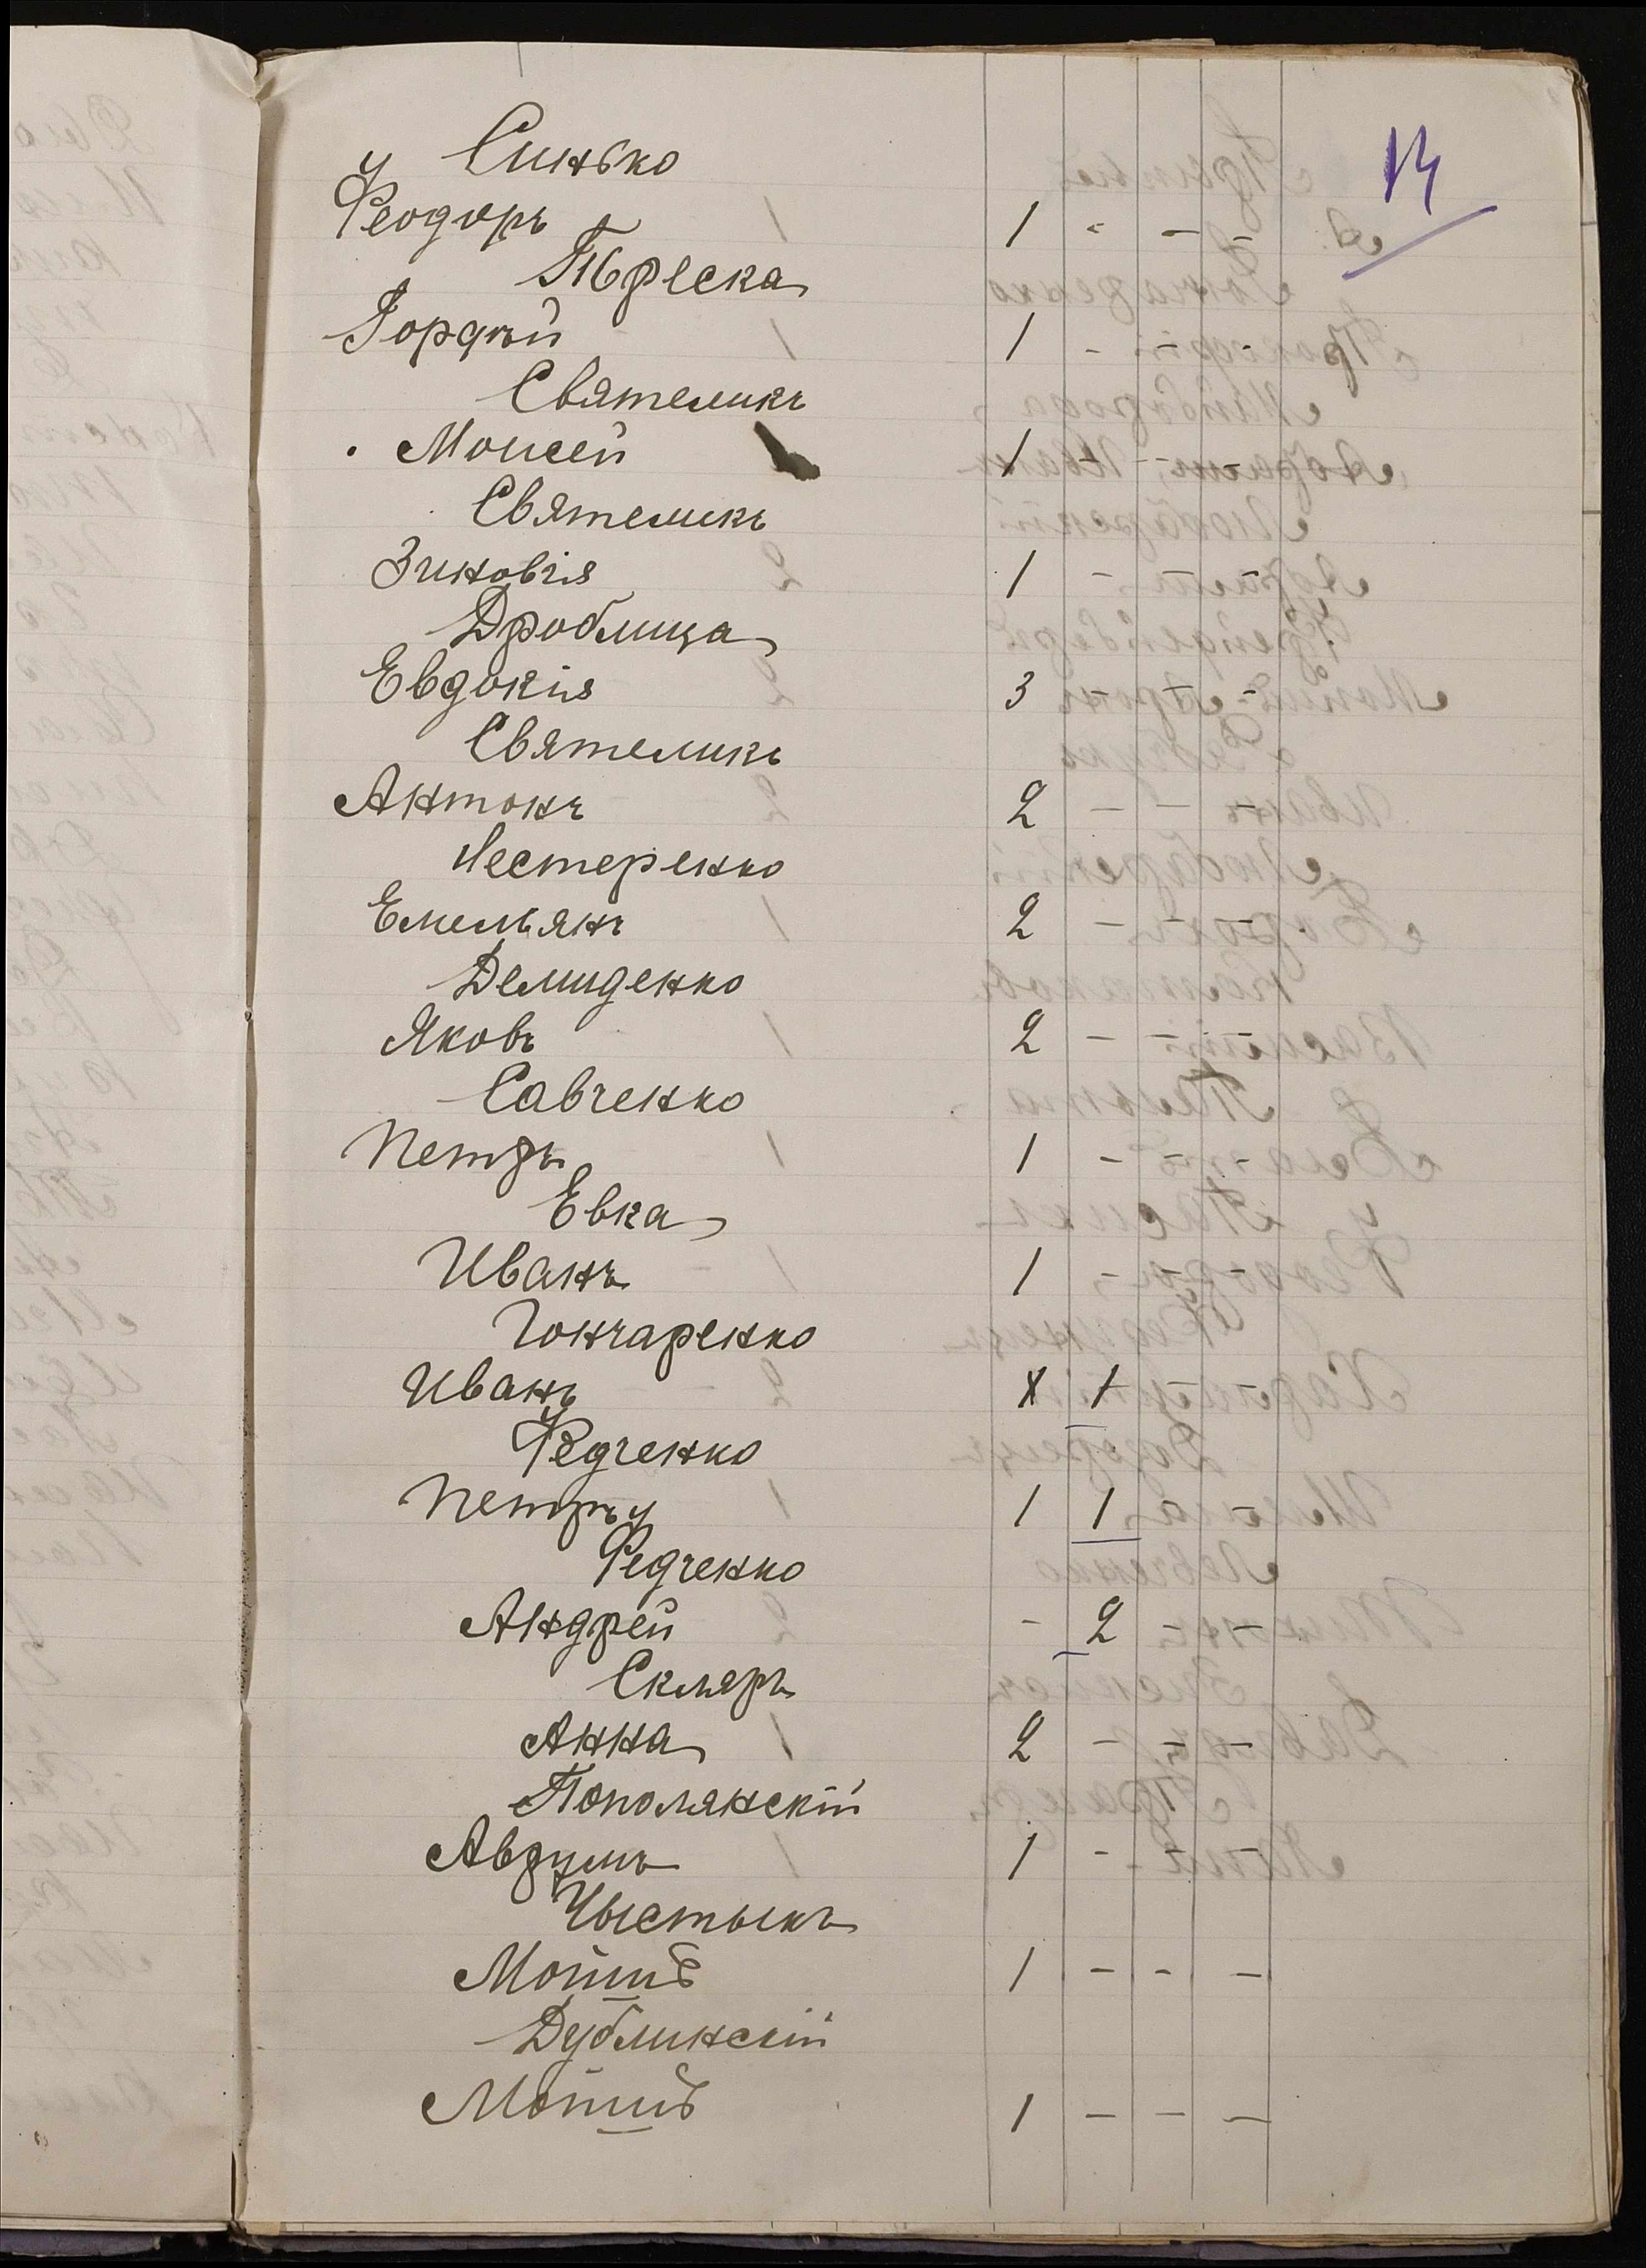 13
Синько
Феодоръ 1 - - -
Гордѣй 1 - - -
Святеликъ
Моисей 1 - - -
Святеликъ
Зиновія 1 - - -
Дроблица
Евдокія 3 - - -
Святеликъ
Антонъ 2 - - -
Нестеренко
Емельянъ 2 - - -
Демиденко
Яковъ 2 - - -
Савченко
Петръ 1 - - -
Евка
Иванъ 1 - - -
Гончаренко
Иванъ 1 - -
Федченко
Петръ 1 1 - -
Федченко
Андрей - 2 - -
Скляръ
Анна 2 - - -
Тополянскій
Аврумъ 1 - - -
Чыстыкъ
Мошко 1 - - -
Дублинскій
Мошко 1 - - -